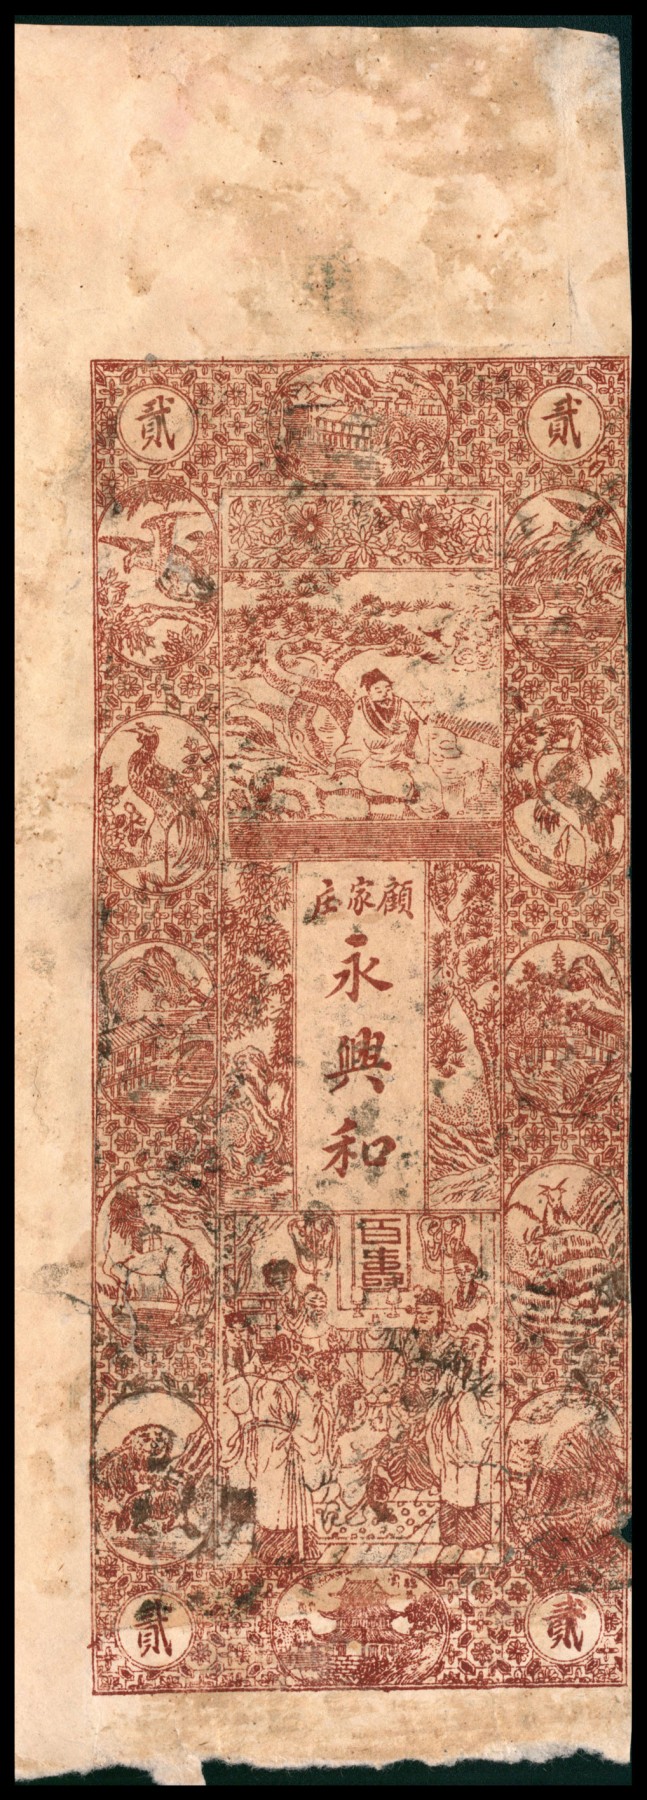 貳
貳
顧家庄
永興和
百壽
貳
貳